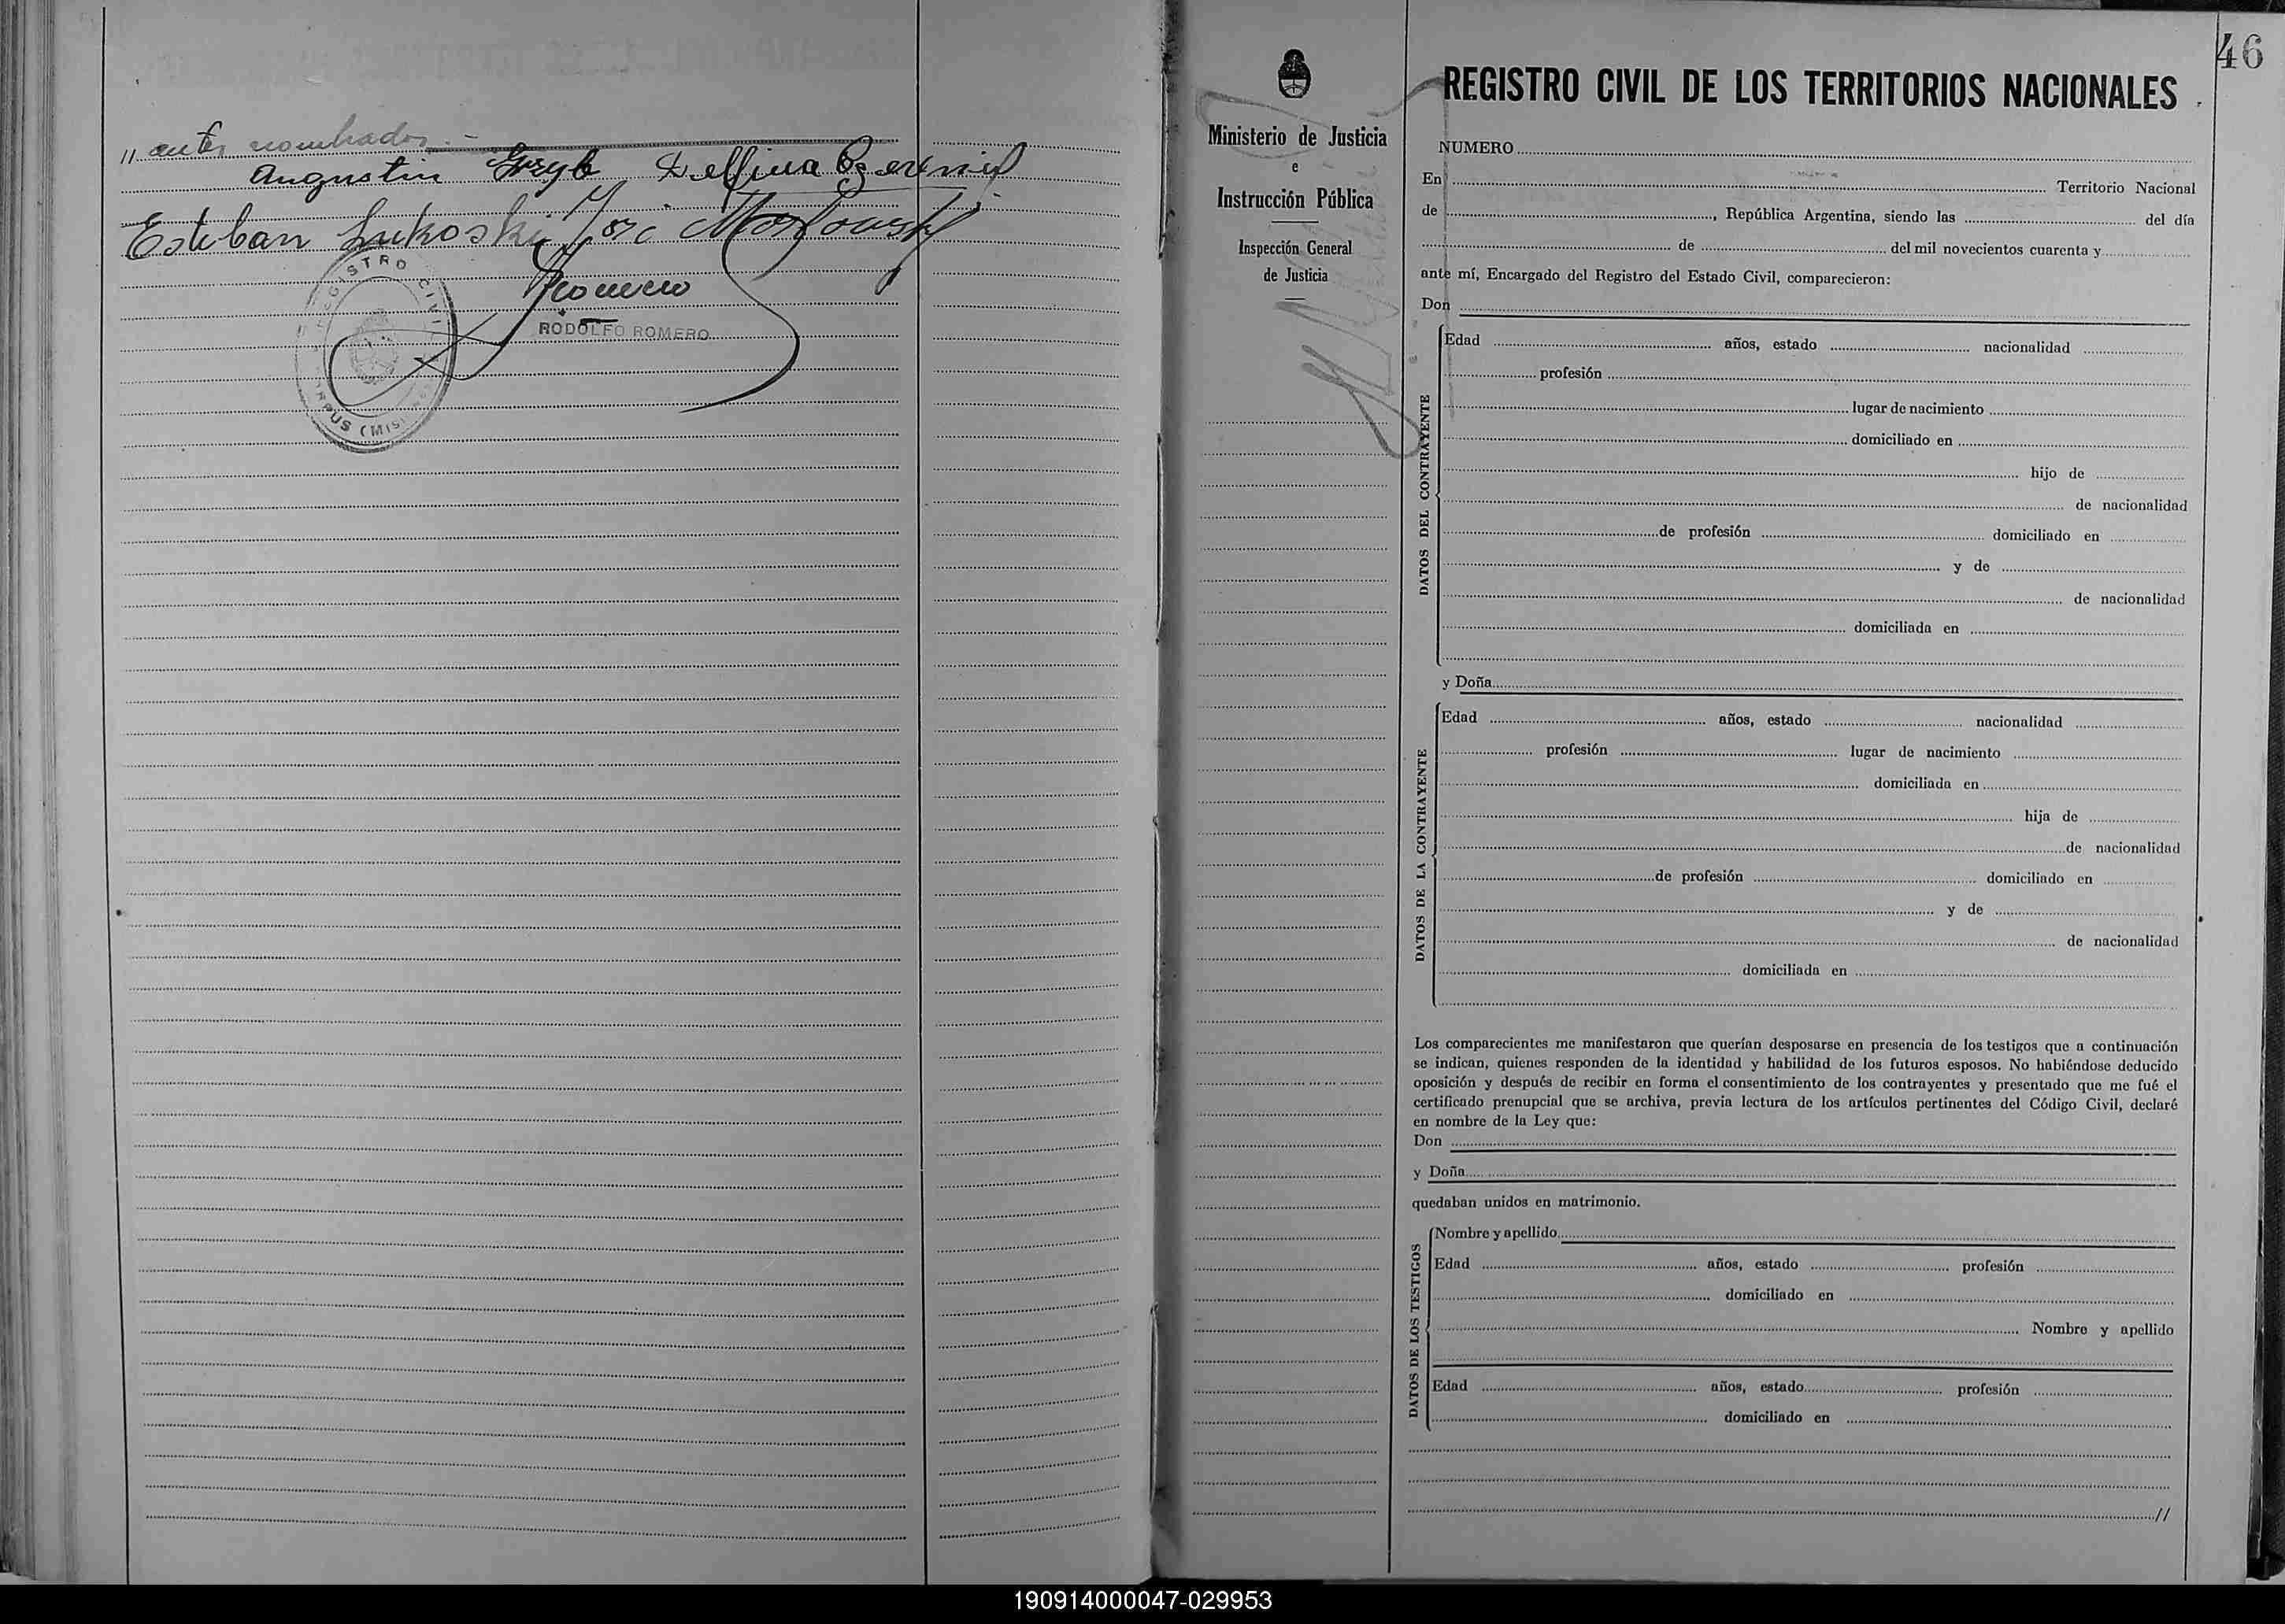 // antes nombrados.-
Augustin Gryb Delfina Czernij
Esteban Lukoski José
Romero
RODOLFO ROMERO
REGISTRO CIVIL
CORPUS (MISIONES)
Ministerio de Justicia
e
Instrucción Pública
Inspección General
de Justicia
46
REGISTRO CIVIL DE LOS TERRITORIOS NACIONALES
NUMERO
En Territorio Nacional
de , República Argentina, siendo las del día
de del mil novecientos cuarenta y
ante mí, Encargado del Registro del Estado Civil, comparecieron:
Don
DATOS DEL CONTRAYENTE
Edad años, estado nacionalidad
profesión
lugar de nacimiento
domiciliado en
hijo de
de nacionalidad
de profesión domiciliado en
y de
de nacionalidad
domiciliada en
y Doña
DATOS DE LA CONTRAYENTE
Edad años, estado nacionalidad
profesión lugar de nacimiento
domiciliada en
hija de
de nacionalidad
de profesión domiciliado en
y de
de nacionalidad
domiciliada en
Los comparecientes me manifestaron que querían desposarse en presencia de los testigos que a continuación
se indican, quienes responden de la identidad y habilidad de los futuros esposos. No habiéndose deducido
oposición y después de recibir en forma el consentimiento de los contrayentes y presentado que me fué el
certificado prenupcial que se archiva, previa lectura de los artículos pertinentes del Código Civil, declaré
en nombre de la Ley que:
Don
y Doña
quedaban unidos en matrimonio.
DATOS DE LOS TESTIGOS
Nombre y apellido
Edad años, estado profesión
domiciliado en
Nombre y apellido
Edad años, estado profesión
domiciliado en
//
190914000047-029953